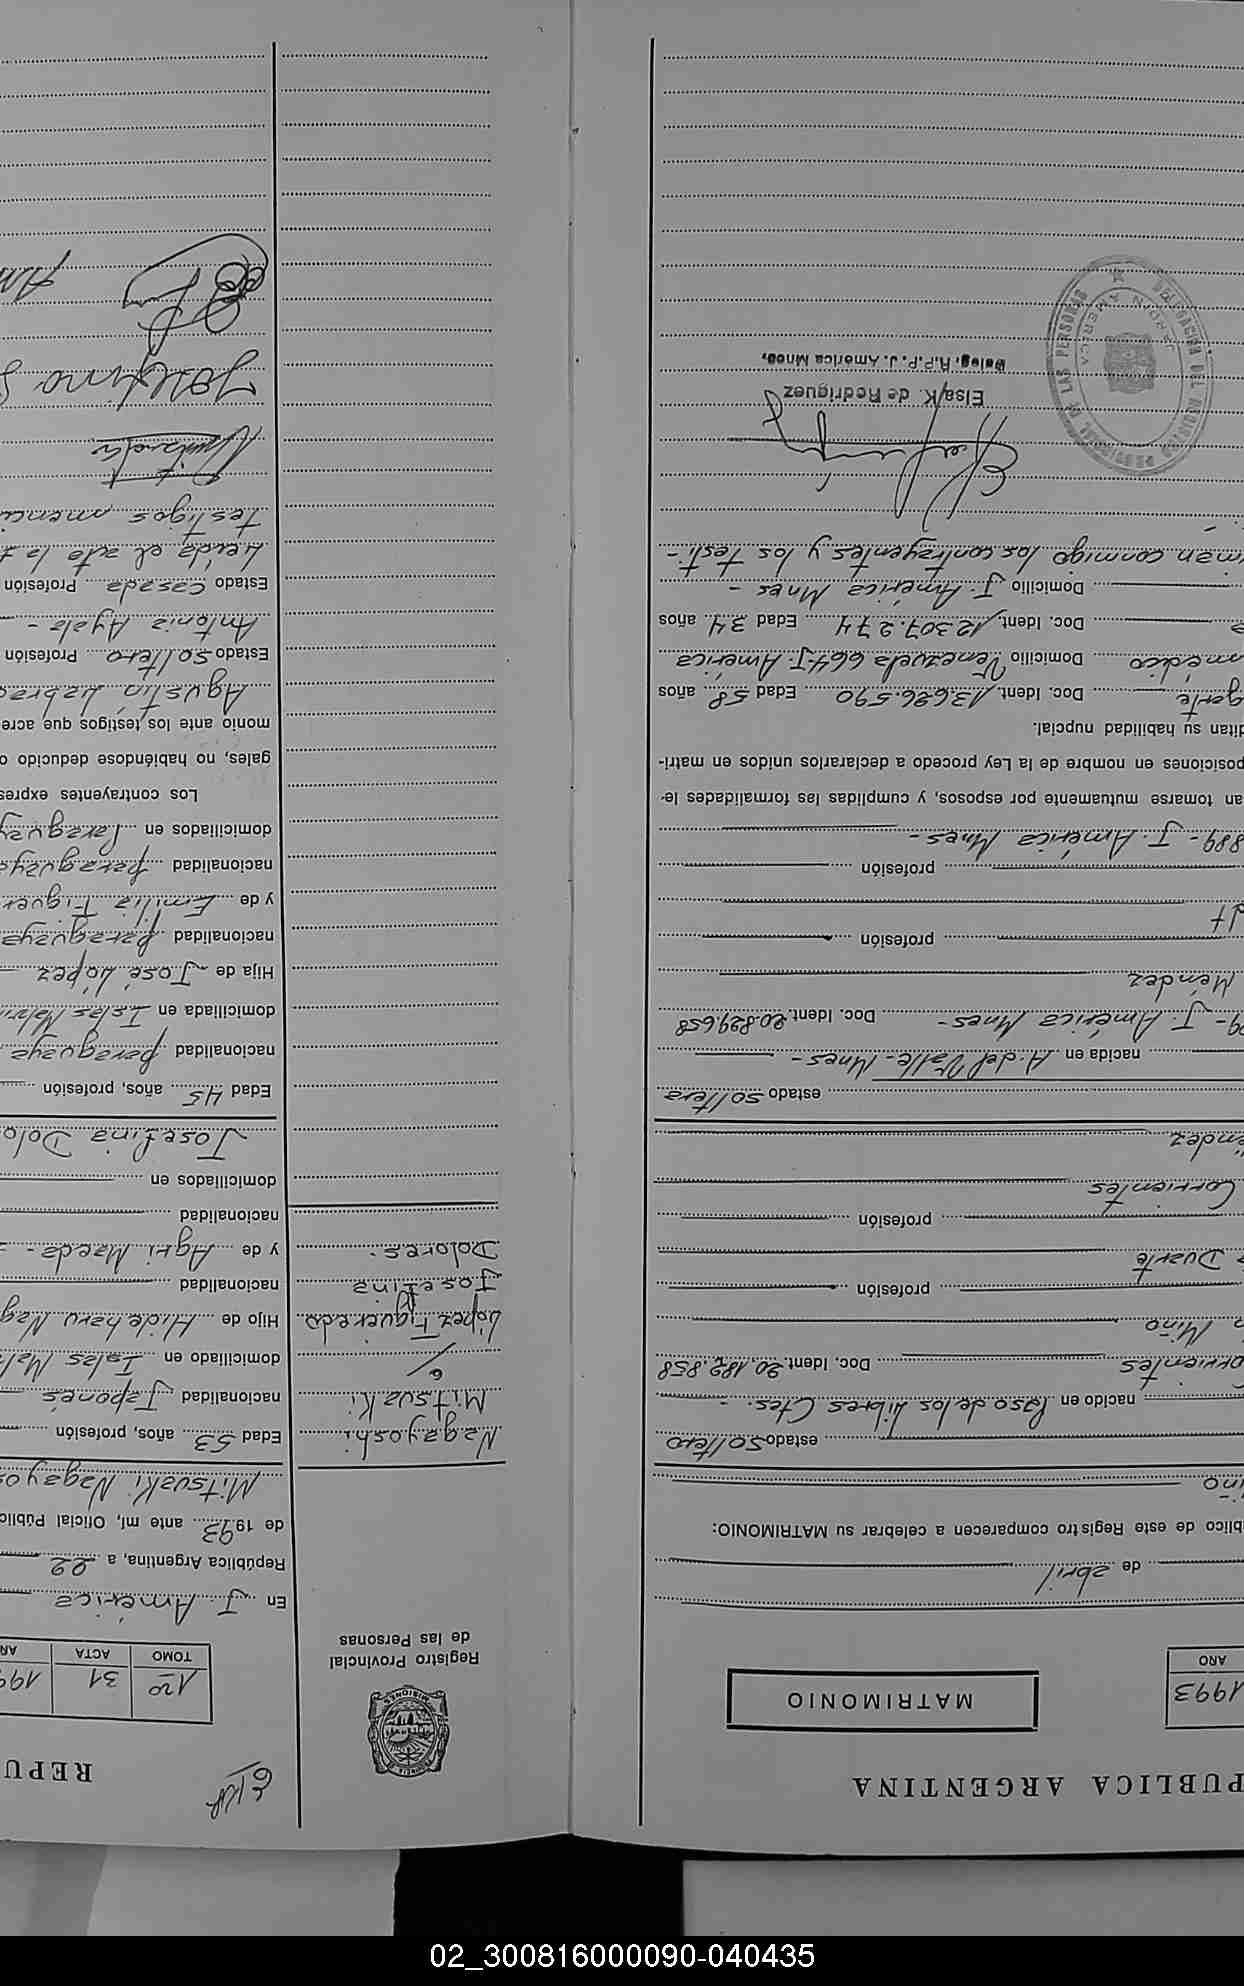 PUBLICA ARGENTINA
1993
AÑO
MATRIMONIO
de abril
blico de este Registro comparecen a celebrar su MATRIMONIO:
estado soltero
nacido en Paso de los Libres Ctes. -
orrientes Doc. Ident. 20.182.858
n Miño
profesión
Duarte
profesión
Corrientes
éndez
estado soltera
nacida en A. del Valle - Mnes -
J. América Mnes - Doc. Ident. 20.829658
Méndez
profesión
profesión
889 - J. América Mnes -
an tomarse mutuamente por esposos, y cumplidas las formalidades le-
posiciones en nombre de la Ley procedo a declararlos unidos en matri-
ditan su habilidad nupcial.
Doc. Ident. 13.696.590 Edad 58 años
médico Domicilio Venezuela 664 J. América
Doc. Ident. 12.307.274 Edad 34 años
Domicilio J. América Mnes -
man conmigo los contrayentes y los testi-
Elsa K. de Rodriguez
Deleg. R.P.P. J. America Mnes,
REPU
TOMO ACTA
1º 31 199
Registro Provincial
de las Personas
Nagayoshi
Mitsuaki
López Figueredo
Josefina
Dolores.
En J. América
República Argentina, a 22
de 1993 ante mí, Oficial Públic
Mitsuaki Nagayo
Edad 53 años, profesión
nacionalidad Japonés
domiciliado en Islas Mal
Hijo de Hideharu Nag
nacionalidad
y de Agri Maeda. -
nacionalidad
domiciliados en
Josefina Dolo
Edad 45 años, profesión
nacionalidad paraguaya
domiciliada en Islas Malvin
Hija de José López
nacionalidad paraguaya
y de Emilia Figuer
nacionalidad paraguaya
domiciliados en Paraguay
Los contrayentes expres
gales, no habiéndose deducido o
monio ante los testigos que acre
Agustín Labra
Estado soltero Profesión
Antonia Ayala -
Estado casada Profesión
Leída el acta la f
testigos menci
Josefina
02_300816000090-040435